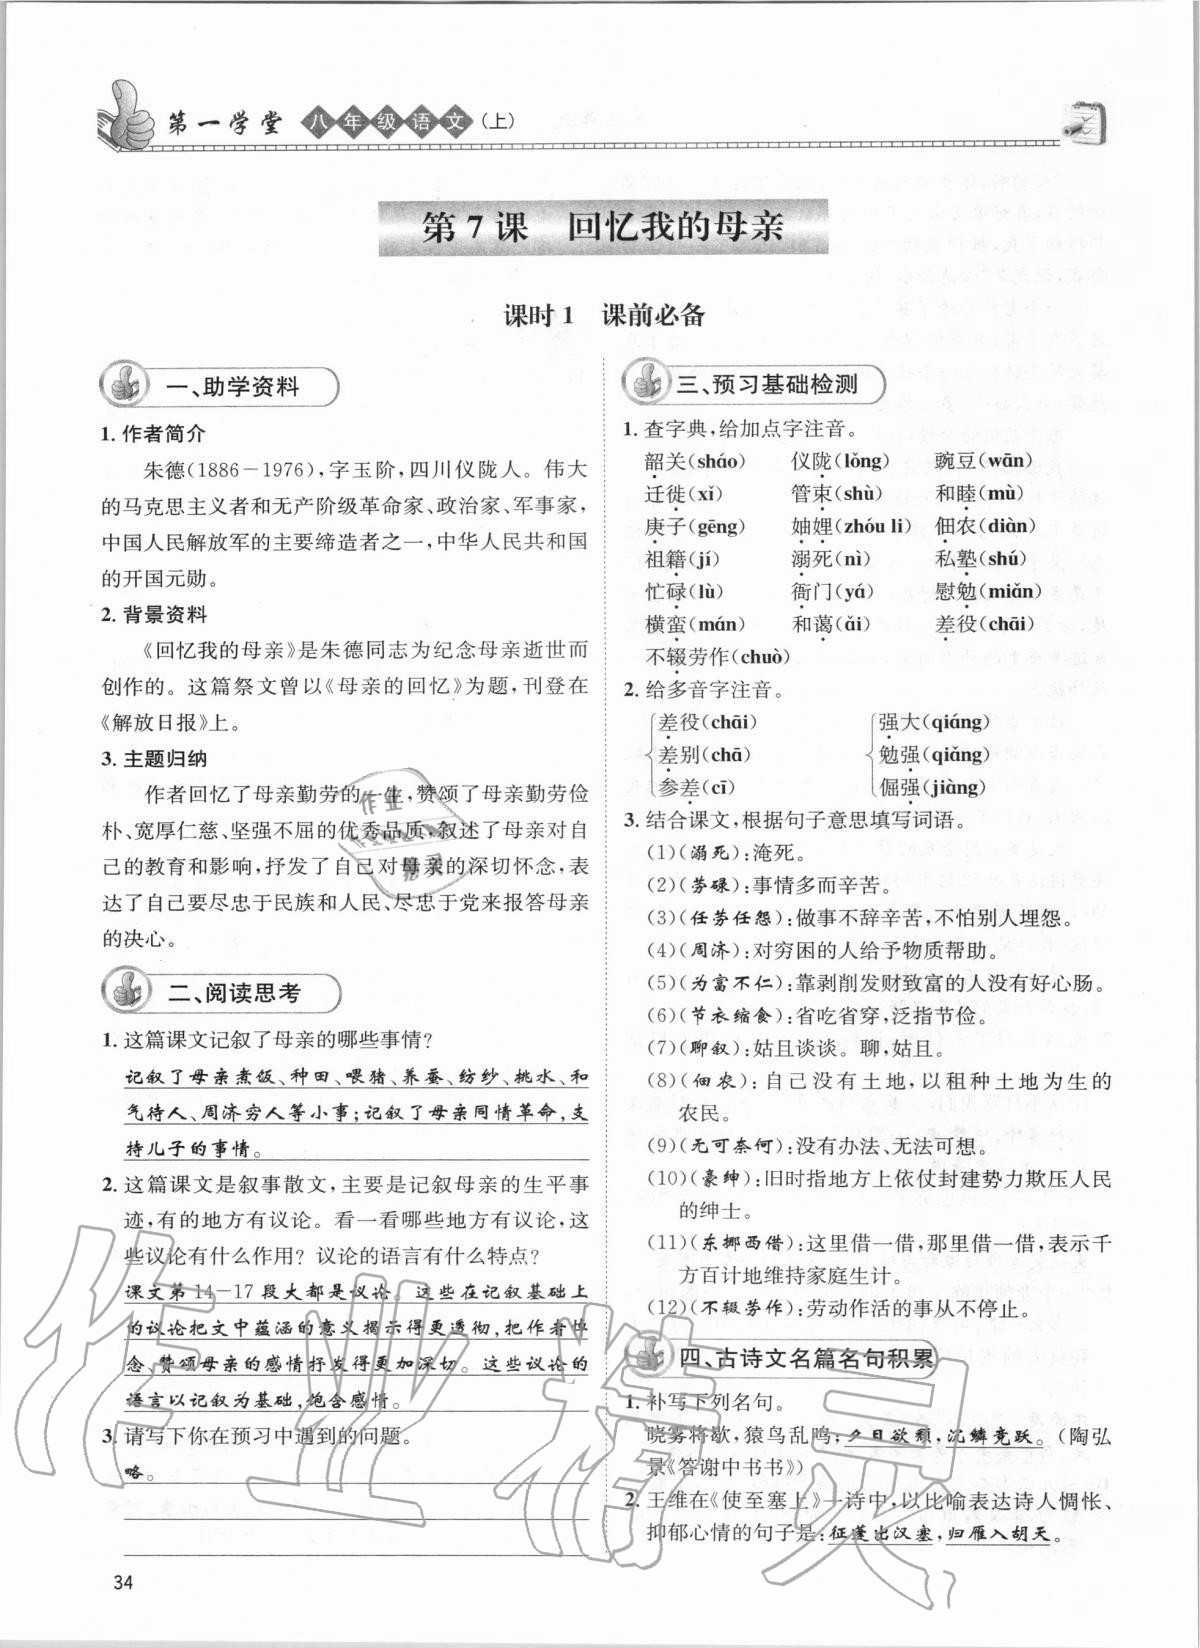 第一学堂 八年级语文(上)
第7课 回忆我的母亲
课时1 课前必备
一、助学资料
1. 作者简介
朱德(1886-1976),字玉阶,四川仪陇人。伟大
的马克思主义者和无产阶级革命家、政治家、军事家,
中国人民解放军的主要缔造者之一,中华人民共和国
的开国元勋。
2. 背景资料
《回忆我的母亲》是朱德同志为纪念母亲逝世而
创作的。这篇祭文曾以《母亲的回忆》为题,刊登在
《解放日报》上。
3. 主题归纳
作者回忆了母亲勤劳的一生,赞颂了母亲勤劳俭
朴、宽厚仁慈、坚强不屈的优秀品质,叙述了母亲对自
己的教育和影响,抒发了自己对母亲的深切怀念,表
达了自己要尽忠于民族和人民、尽忠于党来报答母亲
的决心。
二、阅读思考
1. 这篇课文记叙了母亲的哪些事情?
记叙了母亲煮饭、种田、喂猪、养蚕、纺纱、挑水、和
气待人、周济穷人等小事;记叙了母亲同情革命,支
持儿子的事情。
2. 这篇课文是叙事散文,主要是记叙母亲的生平事
迹,有的地方有议论。看一看哪些地方有议论,这
些议论有什么作用?议论的语言有什么特点?
课文第14-17段大都是议论。这些在记叙基础上
的议论把文中蕴涵的意义揭示得更透彻,把作者悼
念、赞颂母亲的感情抒发得更加深切。这些议论的
语言以记叙为基础,饱含感情。
3. 请写下你在预习中遇到的问题。
略。
34
三、预习基础检测
1. 查字典,给加点字注音。
韶关(sháo) 仪陇(lǒng) 豌豆(wān)
迁徙(xǐ) 管束(shù) 和睦(mù)
庚子(gēng) 妯娌(zhóu li) 佃农(diàn)
祖籍(jí) 溺死(nì) 私塾(shú)
忙碌(lù) 衙门(yá) 慰勉(miǎn)
横蛮(mán) 和蔼(ǎi) 差役(chāi)
不辍劳作(chuò)
2. 给多音字注音。
差役(chāi) 强大(qiáng)
差别(chā) 勉强(qiǎng)
参差(cī) 倔强(jiàng)
3. 结合课文,根据句子意思填写词语。
(1)(溺死):淹死。
(2)(劳碌):事情多而辛苦。
(3)(任劳任怨):做事不辞辛苦,不怕别人埋怨。
(4)(周济):对穷困的人给予物质帮助。
(5)(为富不仁):靠剥削发财致富的人没有好心肠。
(6)(节衣缩食):省吃省穿,泛指节俭。
(7)(聊叙):姑且谈谈。聊,姑且。
(8)(佃农):自己没有土地,以租种土地为生的
农民。
(9)(无可奈何):没有办法、无法可想。
(10)(豪绅):旧时指地方上依仗封建势力欺压人民
的绅士。
(11)(东挪西借):这里借一借,那里借一借,表示千
方百计地维持家庭生计。
(12)(不辍劳作):劳动作活的事从不停止。
四、古诗文名篇名句积累
1. 补写下列名句。
晓雾将歇,猿鸟乱鸣;夕日欲颓,沉鳞竞跃。(陶弘
景《答谢中书书》)
2. 王维在《使至塞上》一诗中,以比喻表达诗人惆怅、
抑郁心情的句子是:征蓬出汉塞,归雁入胡天。
作业精灵